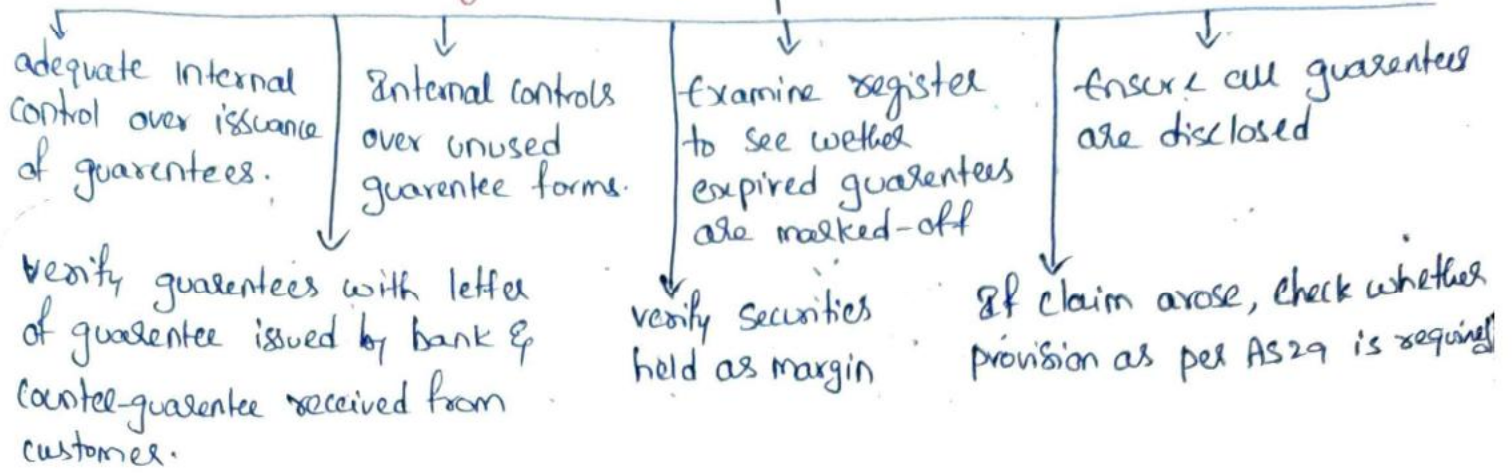 adequate internal
control over issuance
of guarentees.
Internal controls
over unused
guarentee forms.
Examine register
to see wether
expired guarentees
are marked-off
Ensure all guarentees
are disclosed
verify guarentees with letter
of guarentee issued by bank &
counter-guarentee received from
customer.
verify securities
held as margin
If claim arose, check whether
provision as per AS29 is required